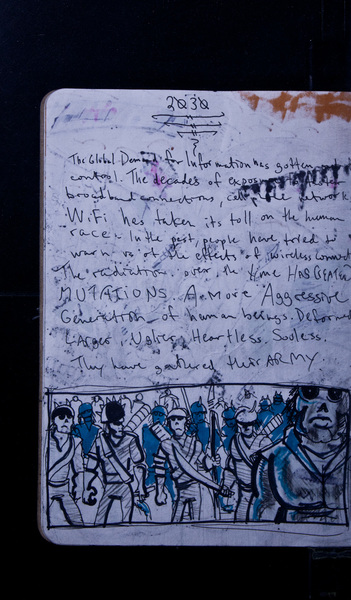 2030
?
The Global Demand for Information has gotten out of
control. The decades of exposure
broadband connections, cell network
WiFi has taken its toll on the human
race. In the past, people have tried to
warn us of the effects of wireless
The radiation over the time HAS
MUTATIONS. A more Aggressive
Generation of human beings. Deformed
Larger, Uglier, Heartless, Souless.
They have gathered their ARMY